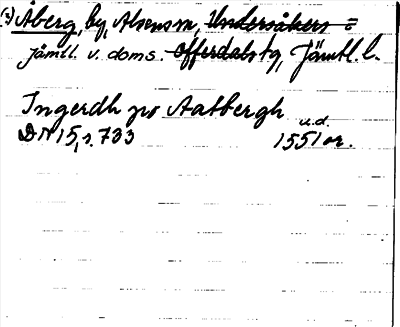 (?) Åberg, by, Alsens sn, Undersåkers =
jämtl. v. doms. Offerdals tg, Jämtl. l.
Ingerdh pŭ Aatbergh u.d.
DN 15, s. 733 1551 or.